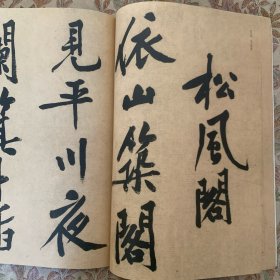 松風閣
依山築閣
見平川夜
闌箕斗